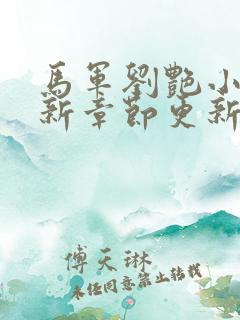 馬軍劉艷小
新章節更新
傅天琳
未经同意禁止转载